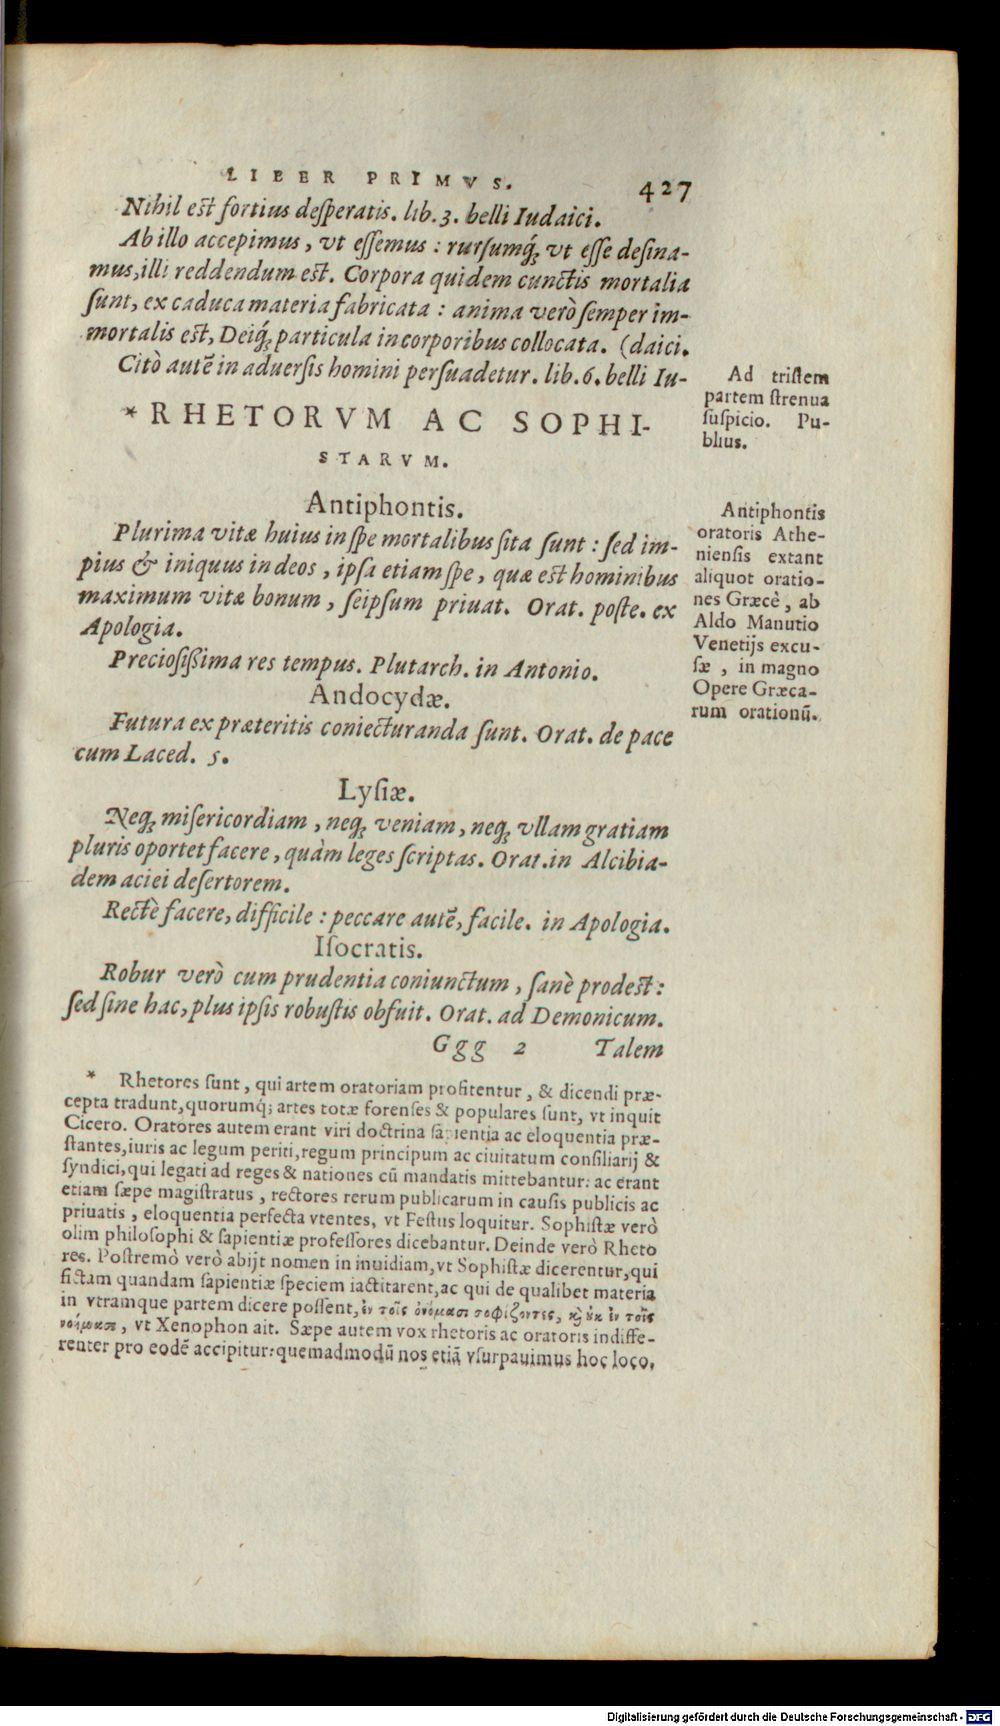 LIBER PRIMVS. 427
Nihil est fortius desperatis. lib. 3. belli Iudaici.
Ab illo accepimus, vt essemus: rursumq́ꝫ vt esse desina-
mus, illi reddendum est. Corpora quidem cunctis mortalia
sunt, ex caduca materia fabricata: anima verò semper im-
mortalis est, Deiq́ꝫ particula in corporibus collocata. (daici.
Citò autē in aduersis homini persuadetur. lib. 6. belli Iu-
Ad tristem
partem strenua
suspicio. Pu-
blius.
*RHETORVM AC SOPHI-
STARVM.
Antiphontis.
Plurima vitæ huius in spe mortalibus sita sunt: sed im-
pius & iniquus in deos, ipsa etiam spe, quæ est hominibus
maximum vitæ bonum, seipsum priuat. Orat. poste. ex
Apologia.
Preciosissima res tempus. Plutarch. in Antonio.
Antiphontis
oratoris Athe-
niensis extant
aliquot oratio-
nes Græcè, ab
Aldo Manutio
Venetijs excu-
sæ, in magno
Opere Græca-
rum orationū.
Andocydæ.
Futura ex præteritis coniecturanda sunt. Orat. de pace
cum Laced. 5.
Lysiæ.
Neqꝫ misericordiam, neqꝫ veniam, neqꝫ vllam gratiam
pluris oportet facere, quàm leges scriptas. Orat. in Alcibia-
dem aciei desertorem.
Rectè facere, difficile: peccare autē, facile. in Apologia.
Isocratis.
Robur verò cum prudentia coniunctum, sanè prodest:
sed sine hac, plus ipsis robustis obfuit. Orat. ad Demonicum.
Ggg 2 Talem
* Rhetores sunt, qui artem oratoriam profitentur, & dicendi præ-
cepta tradunt, quorumq́; artes totæ forenses & populares sunt, vt inquit
Cicero. Oratores autem erant viri doctrina sapientia ac eloquentia præ-
stantes, iuris ac legum periti, regum principum ac ciuitatum consiliarij &
syndici, qui legati ad reges & nationes cū mandatis mittebantur: ac erant
etiam sæpe magistratus, rectores rerum publicarum in causis publicis ac
priuatis, eloquentia perfecta vtentes, vt Festus loquitur. Sophistæ verò
olim philosophi & sapientiæ professores dicebantur. Deinde verò Rheto
res. Postremò verò abijt nomen in inuidiam, vt Sophistæ dicerentur, qui
fictam quandam sapientiæ speciem iactitarent, ac qui de qualibet materia
in vtramque partem dicere possent, ἐν τοῖς ὀνόμασι σοφίζοντες, ϗ̀ ȣ̓κ ἐν τοῖς
νοήμασι, vt Xenophon ait. Sæpe autem vox rhetoris ac oratoris indiffe-
renter pro eodē accipitur: quemadmodū nos etiā vsurpauimus hoc loco.
Digitalisierung gefördert durch die Deutsche Forschungsgemeinschaft - DFG